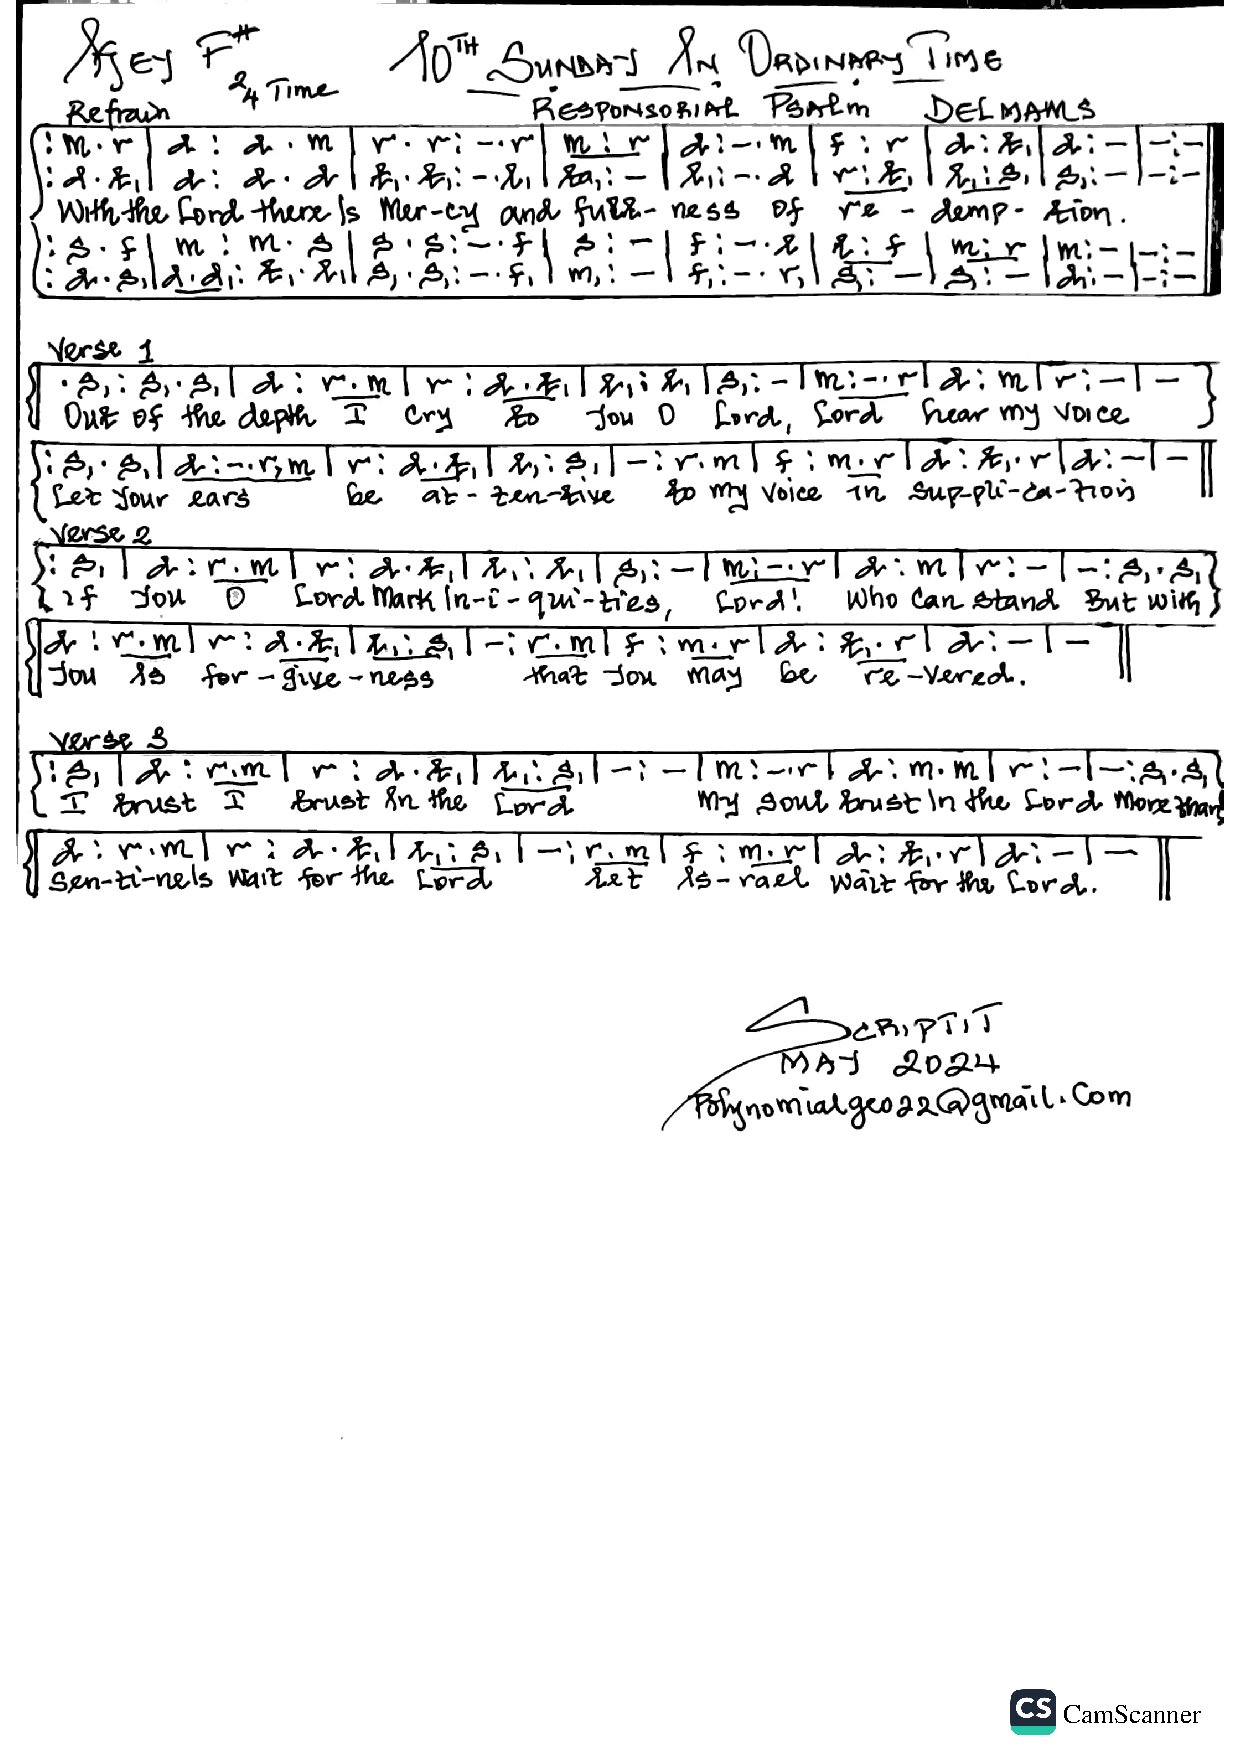 Key F# 10TH SUNDAY IN ORDINARY TIME
2/4 Time
Refrain RESPONSORIAL PSALM DELMAMS
: m . r | d : d . m | r . r : - . r | m : r | d : - . m | f : r | d : t₁ | d : - | - : -
: d . t₁ | d : d . d | t₁ . t₁ : - . l₁ | ta₁ : - | l₁ : - . d | r : t₁ | l₁ : s₁ | s₁ : - | - : -
With the Lord there Is Mer-cy and full-ness of re - demp - tion.
: s . f | m : m . s | s . s : - . f | s : - | f : - . l | l : f | m : r | m : - | - : -
: d . s₁ | d . d₁ : t₁ . l₁ | s₁ . s₁ : - . f₁ | m₁ : - | f₁ : - . r₁ | s₁ : - | s₁ : - | d₁ : - | - : -
Verse 1
. s₁ : s₁ . s₁ | d : r . m | r : d . t₁ | l₁ : l₁ | s₁ : - | m : - . r | d : m | r : - | -
Out of the depth I cry to you O Lord, Lord hear my voice
: s₁ . s₁ | d : - . r , m | r : d . t₁ | l₁ : s₁ | - : r . m | f : m . r | d : t₁ . r | d : - | -
Let your ears be at - ten - tive to my voice in sup-pli-ca-tion
Verse 2
: s₁ | d : r . m | r : d . t₁ | l₁ : l₁ | s₁ : - | m : - . r | d : m | r : - | - : s₁ . s₁
if you O Lord Mark in - i - qui - ties, Lord! Who can stand But with
d : r . m | r : d . t₁ | l₁ : s₁ | - : r . m | f : m . r | d : t₁ . r | d : - | -
you is for - give - ness that you may be re - vered.
Verse 3
: s₁ | d : r . m | r : d . t₁ | l₁ : s₁ | - : - | m : - . r | d : m . m | r : - | - : s₁ . s₁
I trust I trust in the Lord My soul trust in the Lord More than
d : r . m | r : d . t₁ | l₁ : s₁ | - : r . m | f : m . r | d : t₁ . r | d : - | -
Sen-ti-nels wait for the Lord Let Is-rael wait for the Lord.
SCRIPTIT
MAY 2024
Polynomialgeo22@gmail.com
CS CamScanner